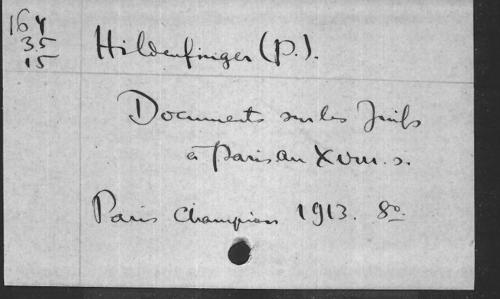 164
35
15
Hildenfinger (P.).
Documents sur les Juifs
à Paris au XVIII. s.
Paris Champion 1913. 8º.